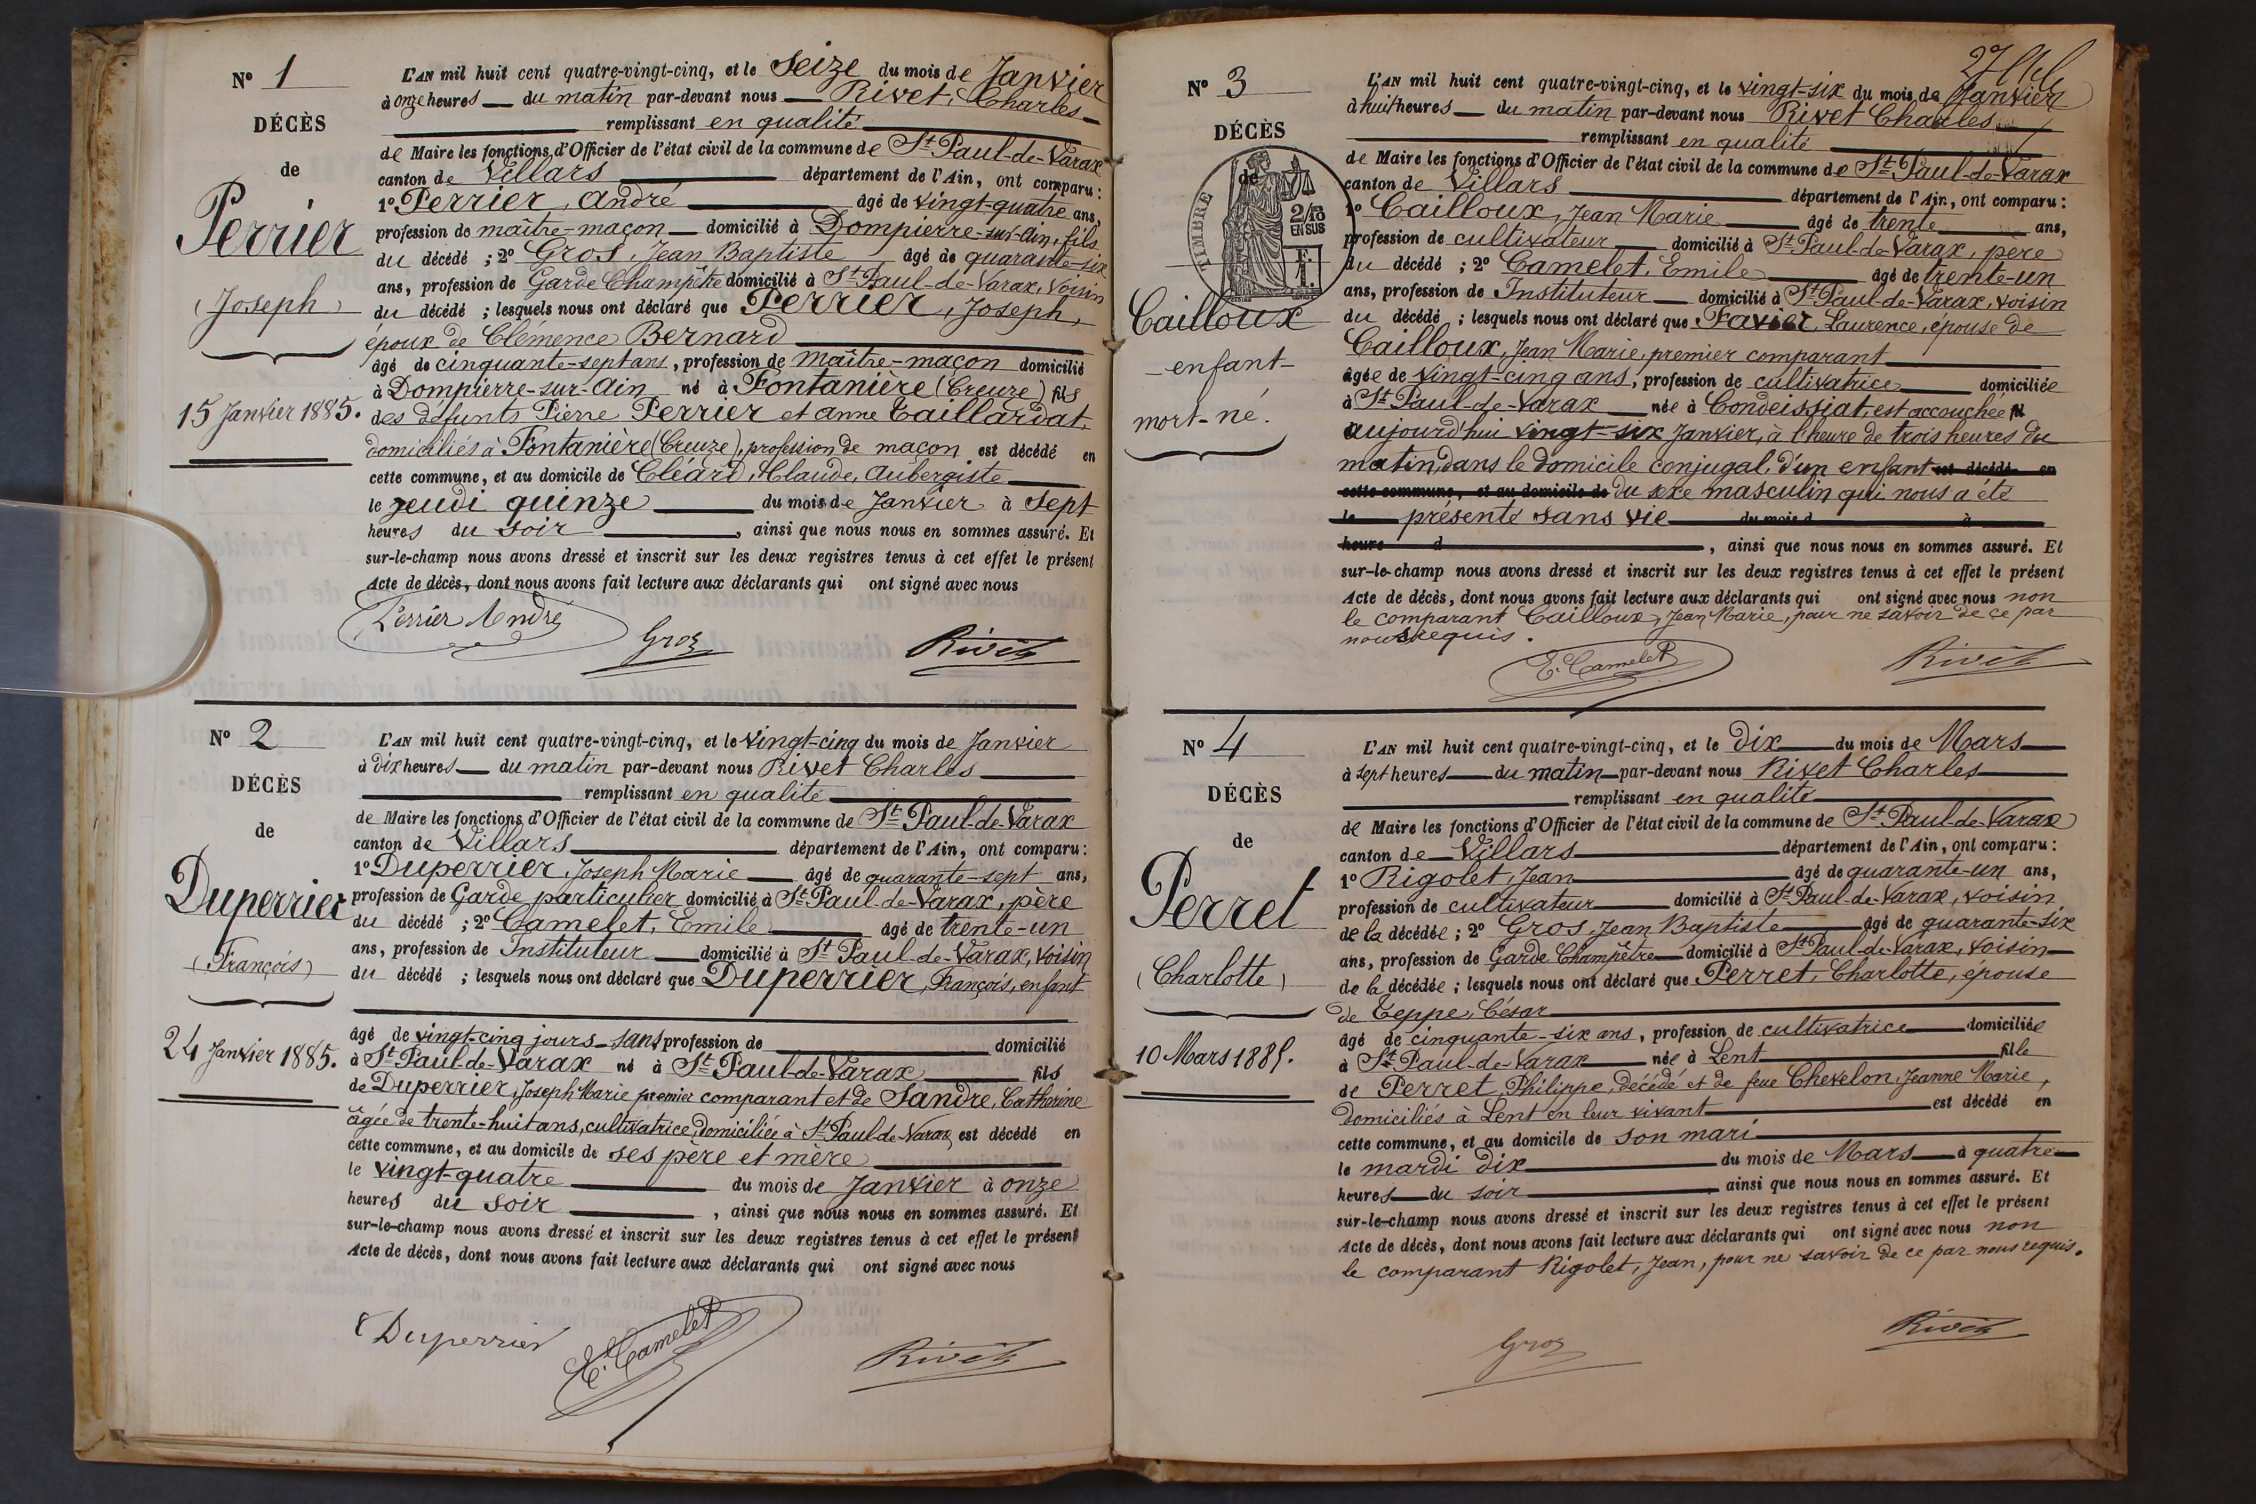 Nº 1
DÉCÈS
de
Perrier
(Joseph)
15 Janvier 1885.
L'AN mil huit cent quatre-vingt-cinq, et le Seize du mois de Janvier
à onze heures du matin par-devant nous Rivet, Charles
remplissant en qualité
de Maire les fonctions d'Officier de l'état civil de la commune de St Paul-de-Varax
canton de Villars département de l'Ain, ont comparu :
1º Perrier, André âgé de vingt-quatre ans,
profession de maître-maçon domicilié à Dompierre-sur-Ain, fils
du décédé ; 2º Gros, Jean Baptiste âgé de quarante-six
ans, profession de Garde Champêtre domicilié à St Paul-de-Varax, voisin
du décédé ; lesquels nous ont déclaré que Perrier, Joseph,
époux de Clémence Bernard
âgé de cinquante-sept ans, profession de maître-maçon domicilié
à Dompierre-sur-Ain né à Fontanière (Creuze) fils
des défunts Pierre Perrier et Anne Taillardat,
domiciliés à Fontanière (Creuze), profession de maçon est décédé en
cette commune, et au domicile de Cléard, Claude, Aubergiste
le jeudi quinze du mois de Janvier à sept
heures du soir , ainsi que nous nous en sommes assuré. Et
sur-le-champ nous avons dressé et inscrit sur les deux registres tenus à cet effet le présent
Acte de décès, dont nous avons fait lecture aux déclarants qui ont signé avec nous
Perrier André
Gros
Rivet
Nº 2
DÉCÈS
de
Duperrier
(François)
24 Janvier 1885.
L'AN mil huit cent quatre-vingt-cinq, et le vingt-cinq du mois de Janvier
à dix heures du matin par-devant nous Rivet Charles
remplissant en qualité
de Maire les fonctions d'Officier de l'état civil de la commune de St Paul-de-Varax
canton de Villars département de l'Ain, ont comparu :
1º Duperrier, Joseph Marie âgé de quarante-sept ans,
profession de Garde particulier domicilié à St Paul-de-Varax, père
du décédé ; 2º Camelet, Emile âgé de trente-un
ans, profession de Instituteur domicilié à St Paul-de-Varax, voisin
du décédé ; lesquels nous ont déclaré que Duperrier, François, enfant
âgé de vingt-cinq jours sans profession de domicilié
à St Paul-de-Varax né à St Paul-de-Varax fils
de Duperrier, Joseph Marie premier comparant et de Sandre, Catherine
âgée de trente-huit ans, cultivatrice, domiciliée à St Paul-de-Varax, est décédé en
cette commune, et au domicile de ses père et mère
le vingt-quatre du mois de Janvier à onze
heures du soir , ainsi que nous nous en sommes assuré. Et
sur-le-champ nous avons dressé et inscrit sur les deux registres tenus à cet effet le présent
Acte de décès, dont nous avons fait lecture aux déclarants qui ont signé avec nous
Duperrier
E. Camelet
Rivet
Nº 3
DÉCÈS
de
TIMBRE
2/10 EN SUS
Cailloux
enfant
mort-né.
L'AN mil huit cent quatre-vingt-cinq, et le vingt-six du mois de Janvier
à huit heures du matin par-devant nous Rivet Charles
remplissant en qualité
de Maire les fonctions d'Officier de l'état civil de la commune de St Paul-de-Varax
canton de Villars département de l'Ain, ont comparu :
1º Cailloux, Jean Marie âgé de trente ans,
profession de cultivateur domicilié à St Paul-de-Varax, père
du décédé ; 2º Camelet, Emile âgé de trente-un
ans, profession de Instituteur domicilié à St Paul-de-Varax, voisin
du décédé ; lesquels nous ont déclaré que Favier, Laurence, épouse de
Cailloux, Jean Marie, premier comparant
âgée de vingt-cinq ans, profession de cultivatrice domiciliée
à St Paul-de-Varax née à Condeissiat, est accouchée
aujourd'hui vingt-six Janvier, à l'heure de trois heures du
matin, dans le domicile conjugal, d'un enfant est décédé en
cette commune, et au domicile de du sexe masculin qui nous a été
le présenté sans vie du mois d à
heure d , ainsi que nous nous en sommes assuré. Et
sur-le-champ nous avons dressé et inscrit sur les deux registres tenus à cet effet le présent
Acte de décès, dont nous avons fait lecture aux déclarants qui ont signé avec nous non
le comparant Cailloux, Jean Marie, pour ne savoir de ce par
nous requis.
E. Camelet
Rivet
Nº 4
DÉCÈS
de
Perret
(Charlotte)
10 Mars 1885.
L'AN mil huit cent quatre-vingt-cinq, et le Dix du mois de Mars
à sept heures du matin par-devant nous Rivet Charles
remplissant en qualité
de Maire les fonctions d'Officier de l'état civil de la commune de St Paul-de-Varax
canton de Villars département de l'Ain, ont comparu :
1º Rigolet, Jean âgé de quarante-un ans,
profession de cultivateur domicilié à St Paul-de-Varax, voisin
de la décédée ; 2º Gros, Jean Baptiste âgé de quarante-six
ans, profession de Garde Champêtre domicilié à St Paul-de-Varax, voisin
de la décédée ; lesquels nous ont déclaré que Perret, Charlotte, épouse
de Teppe, César
âgé de cinquante-six ans, profession de cultivatrice domiciliée
à St Paul-de-Varax née à Lent fille
de Perret, Philippe, décédé et de feue Chevelon, Jeanne Marie,
domiciliés à Lent en leur vivant est décédé en
cette commune, et au domicile de son mari
le mardi dix du mois de Mars à quatre
heures du soir , ainsi que nous nous en sommes assuré. Et
sur-le-champ nous avons dressé et inscrit sur les deux registres tenus à cet effet le présent
Acte de décès, dont nous avons fait lecture aux déclarants qui ont signé avec nous non
le comparant Rigolet, Jean, pour ne savoir de ce par nous requis.
Gros
Rivet